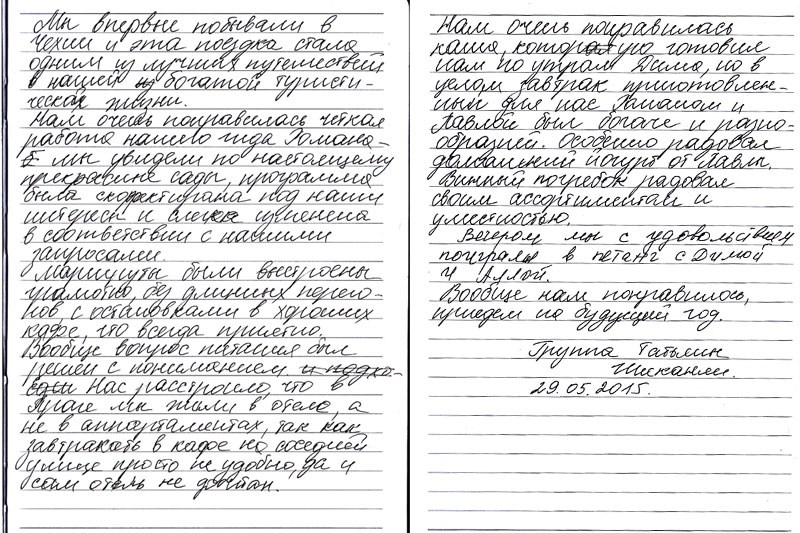 Мы впервые побывали в
Чехии и эта поездка стала
одним из лучших путешествий
в нашей богатой туристи-
ческой жизни.
Нам очень понравилась чёткая
работа нашего гида Романа-
мы увидели по настоящему
прекрасные сады, программа
была скорректирована под наши
интересы и слегка изменена
в соответствии с нашими
запросами.
Маршруты были выстроены
грамотно, без длинных перего-
нов, с остановками в хороших
кафе, что всегда приятно.
Вообще вопрос питания был
решен с пониманием и подхо-
Нас расстроило, что в
Праге мы жили в отеле, а
не в аппартаментах, так как
завтракать в кафе на соседней
улице просто не удобно, да и
сам отель не
Нам очень понравилась
каша, которую готовил
нам по утрам Дима, но в
целом завтрак приготовлен-
ный для нас Романом и
Павлой был богаче и разно-
образней. Особенно радовал
домашний йогурт от Павлы.
Винный погребок радовал
своим ассортиментом и
уместностью.
Вечером мы с удовольствием
поиграли в петанг с Димой
и Аллой.
Вообще нам понравилось,
приедем на будущий год.
Группа Татьяны
29.05.2015.